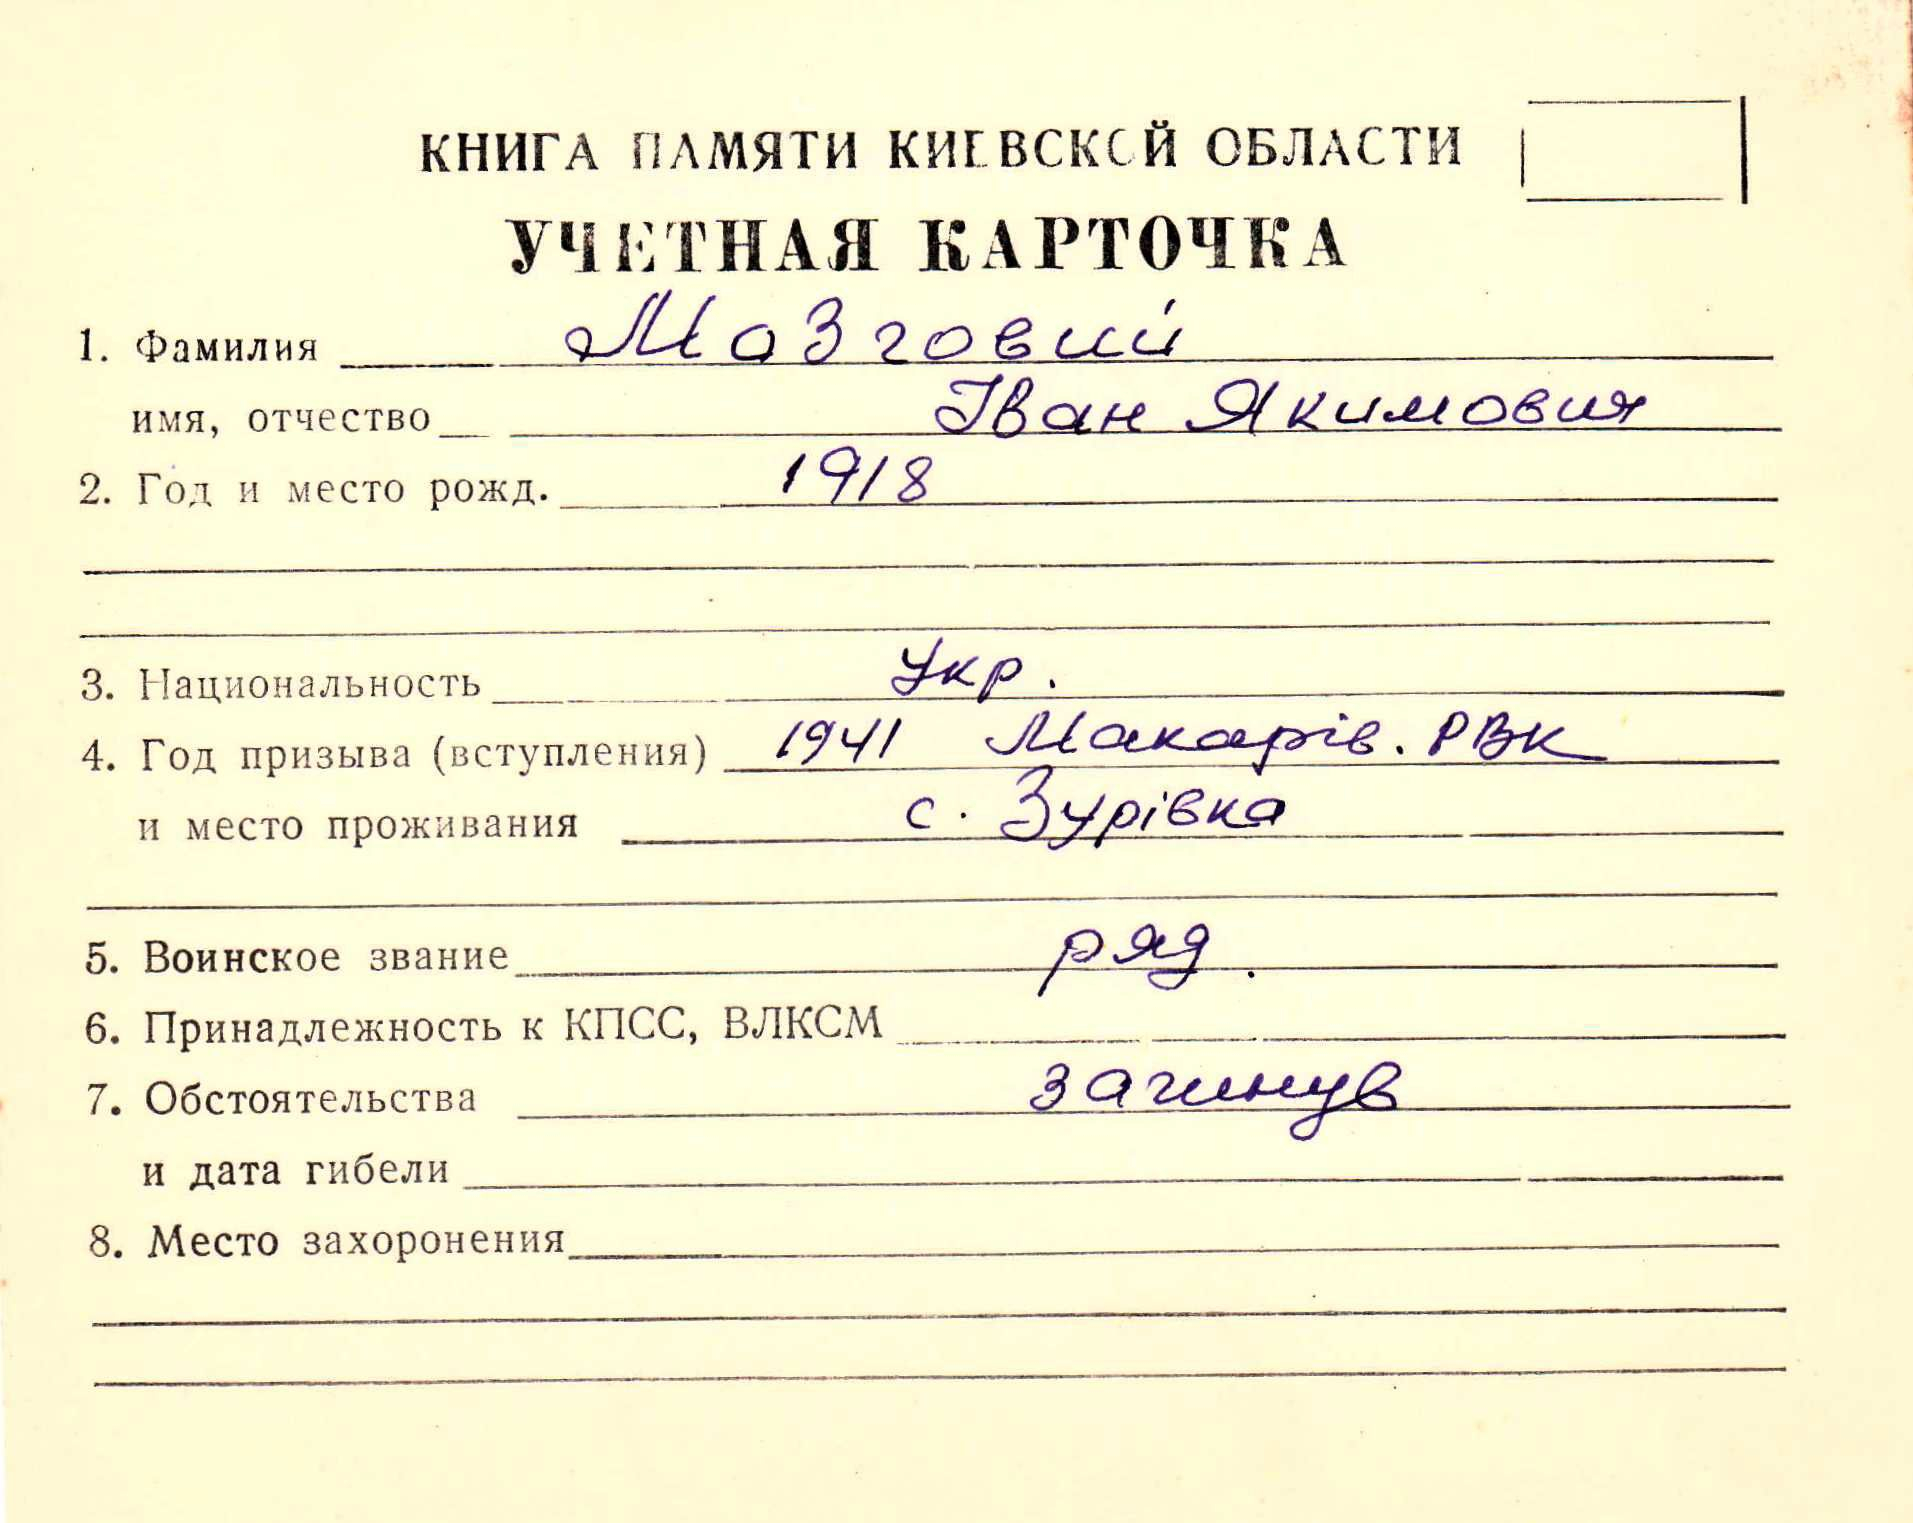 КНИГА ПАМЯТИ КИЕВСКОЙ ОБЛАСТИ
УЧЕТНАЯ КАРТОЧКА
1. Фамилия Мозговий
имя, отчество Іван Якимович
2. Год и место рожд. 1918
3. Национальность Укр.
4. Год призыва (вступления) 1941 Макарів. РВК
и место проживания с. Зурівка
5. Воинское звание ряд.
6. Принадлежность к КПСС, ВЛКСМ
7. Обстоятельства загинув
и дата гибели
8. Место захоронения